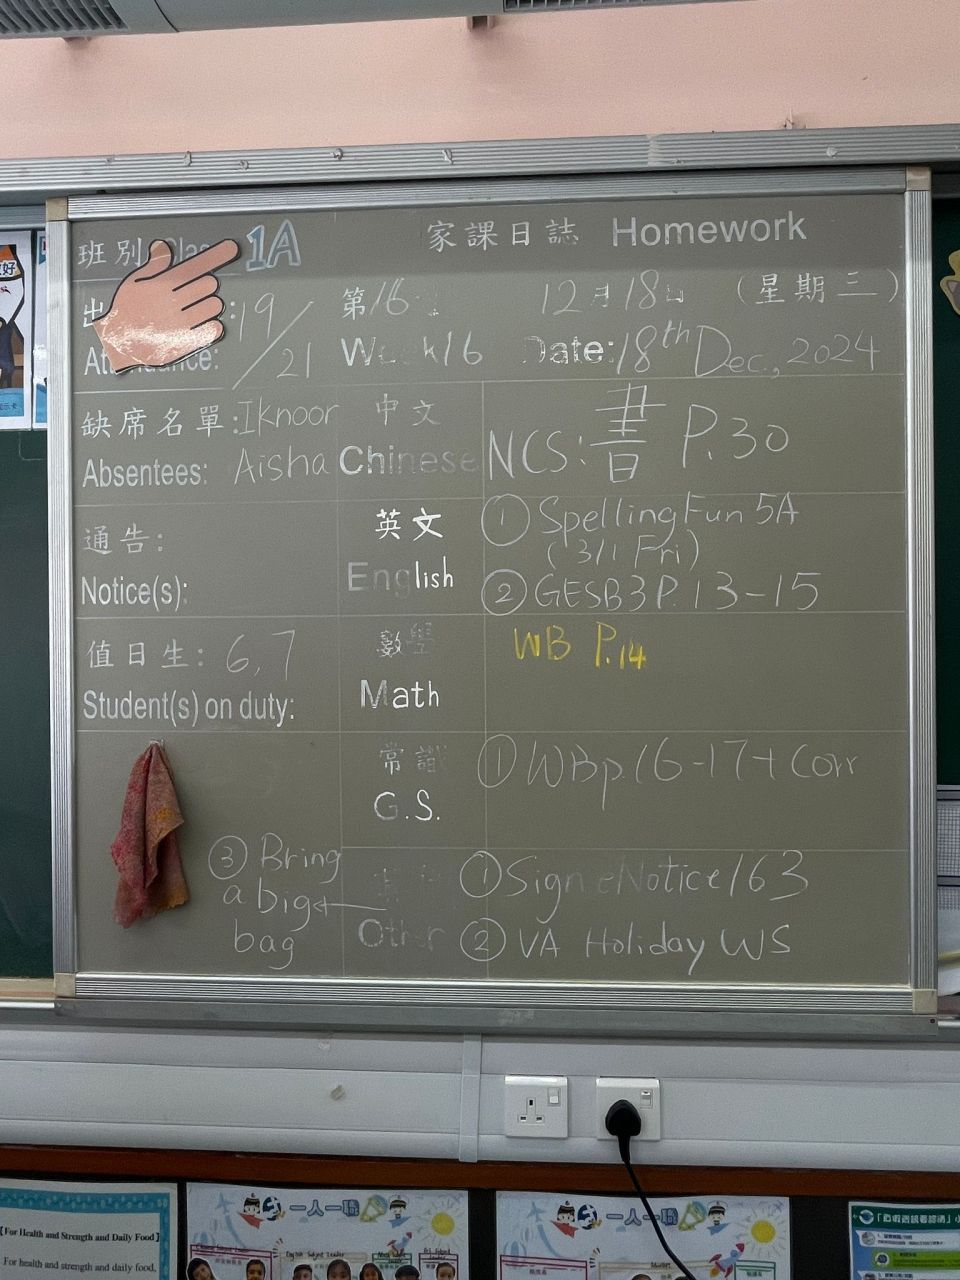 班別 Class 1A
家課日誌 Homework
19/21
第16
12月18日 (星期三)
Attendance:
Week16
Date: 18th Dec., 2024
缺席名單: Iknoor
Absentees: Aisha
中文
Chinese
NCS: 書 P.30
通告:
Notice(s):
英文
English
① Spelling Fun 5A
(3/1 Fri)
② GESB3 P.13-15
值日生: 6,7
Student(s) on duty:
數學
Math
WB P.14
常識
G.S.
① WBp.16-17+Corr
Other
① Sign eNotice163
② VA Holiday WS
③ Bring
a big
bag
【For Health and Strength and Daily Food】
For health and strength and daily food,
一人一職
English Subject Leader
一人一職